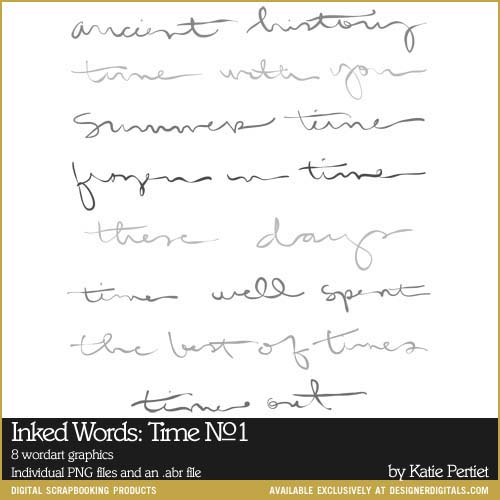 ancient history
time with you
summer time
frozen in time
these days
time well spent
the best of times
time out
Inked Words: Time Nº1
8 wordart graphics
Individual PNG files and an .abr file
by Katie Pertiet
DIGITAL SCRAPBOOKING PRODUCTS
AVAILABLE EXCLUSIVELY AT DESIGNERDIGITALS.COM